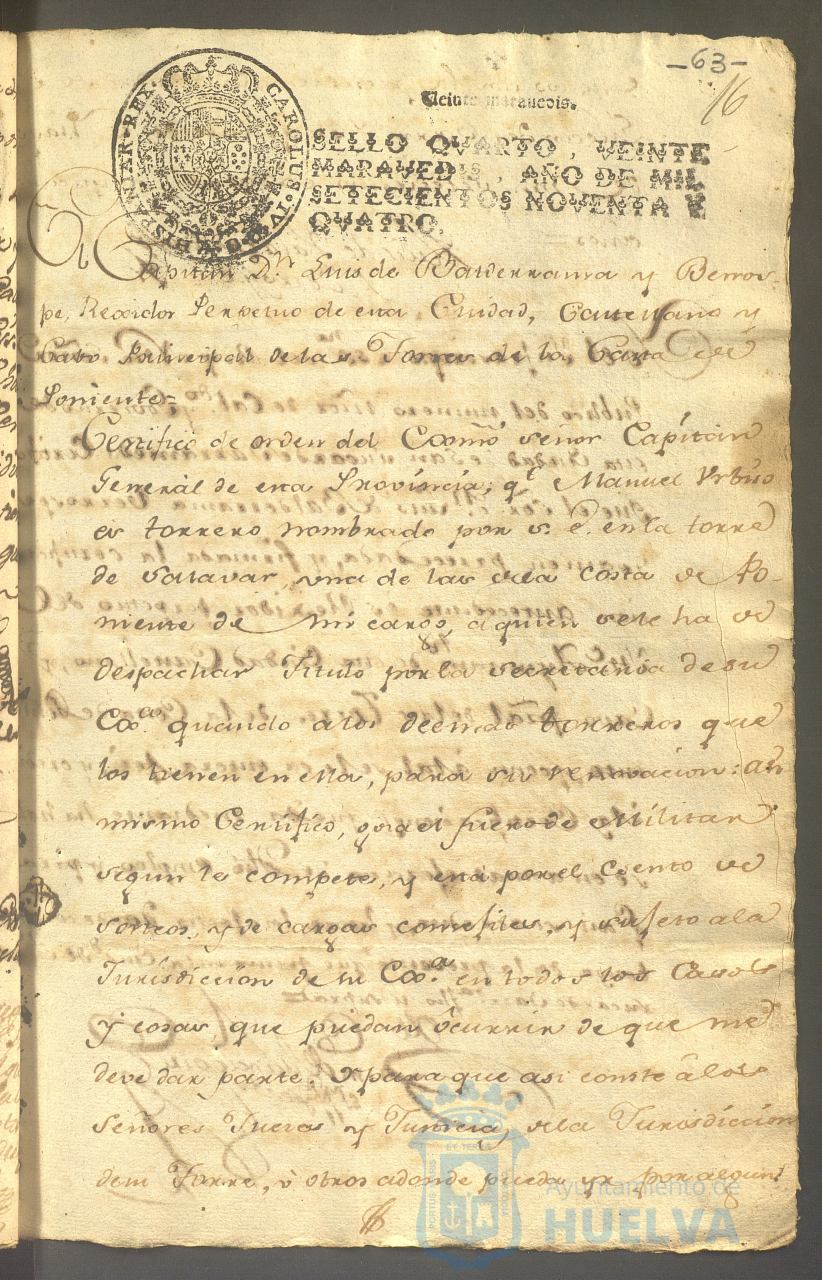 -63-
16
Veinte maravedis.
CAROLUS IV D G HISPANIAR REX
SELLO QVARTO, VEINTE
MARAVEDIS, AÑO DE MIL
SETECIENTOS NOVENTA Y
QVATRO.
Capitan Dn. Luis de Balderrama y Berros-
pe, Rexidor Perpetuo de esta Ciudad, Castellano y
Cavo Principal de las Torres de la Costa de
Poniente=
Certifico de orden del Exmo señor Capitan
General de esta Provincia, qe Manuel
es torrero nombrado por S. E. en la torre
de Salavar, una de las de la Costa de Po-
niente de mi cargo, a quien se le ha de
despachar Titulo por la Secretaria de su
Exa. quando a los demas torreros que
los tienen en ella, para su renovacion: asi
mismo Certifico, goza el fuero de Militar
segun le compete, y está por el Exento de
sorteos, y de cargas consegiles, y sujeto a la
Jurisdiccion de su Exa. en todos los Casos
y cosas, que puedan ôcurrir de que me
deve dar parte. Y para que asi conste â los
Señores Jueces y Justicias de la Jurisdiccion
de su Torre, ù otros adonde pueda yr por algun
PORTUS MARIS ET TERRAE CUSTODIA
Ayuntamiento de
HUELVA